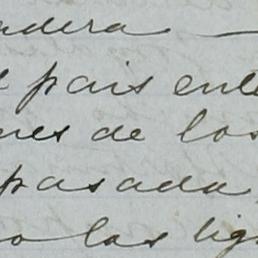 adera —
l pais ente
nes de los
pasada,
o las lig